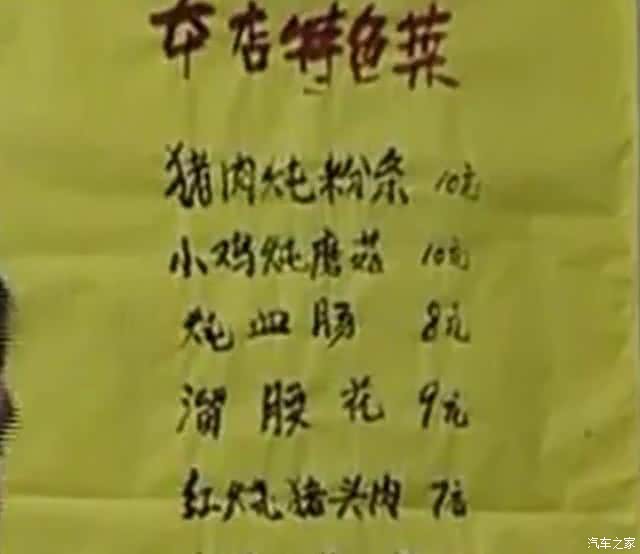 本店特色菜
猪肉炖粉条 10元
小鸡炖蘑菇 10元
炖血肠 8元
溜腰花 9元
红烧猪头肉 7元
汽车之家